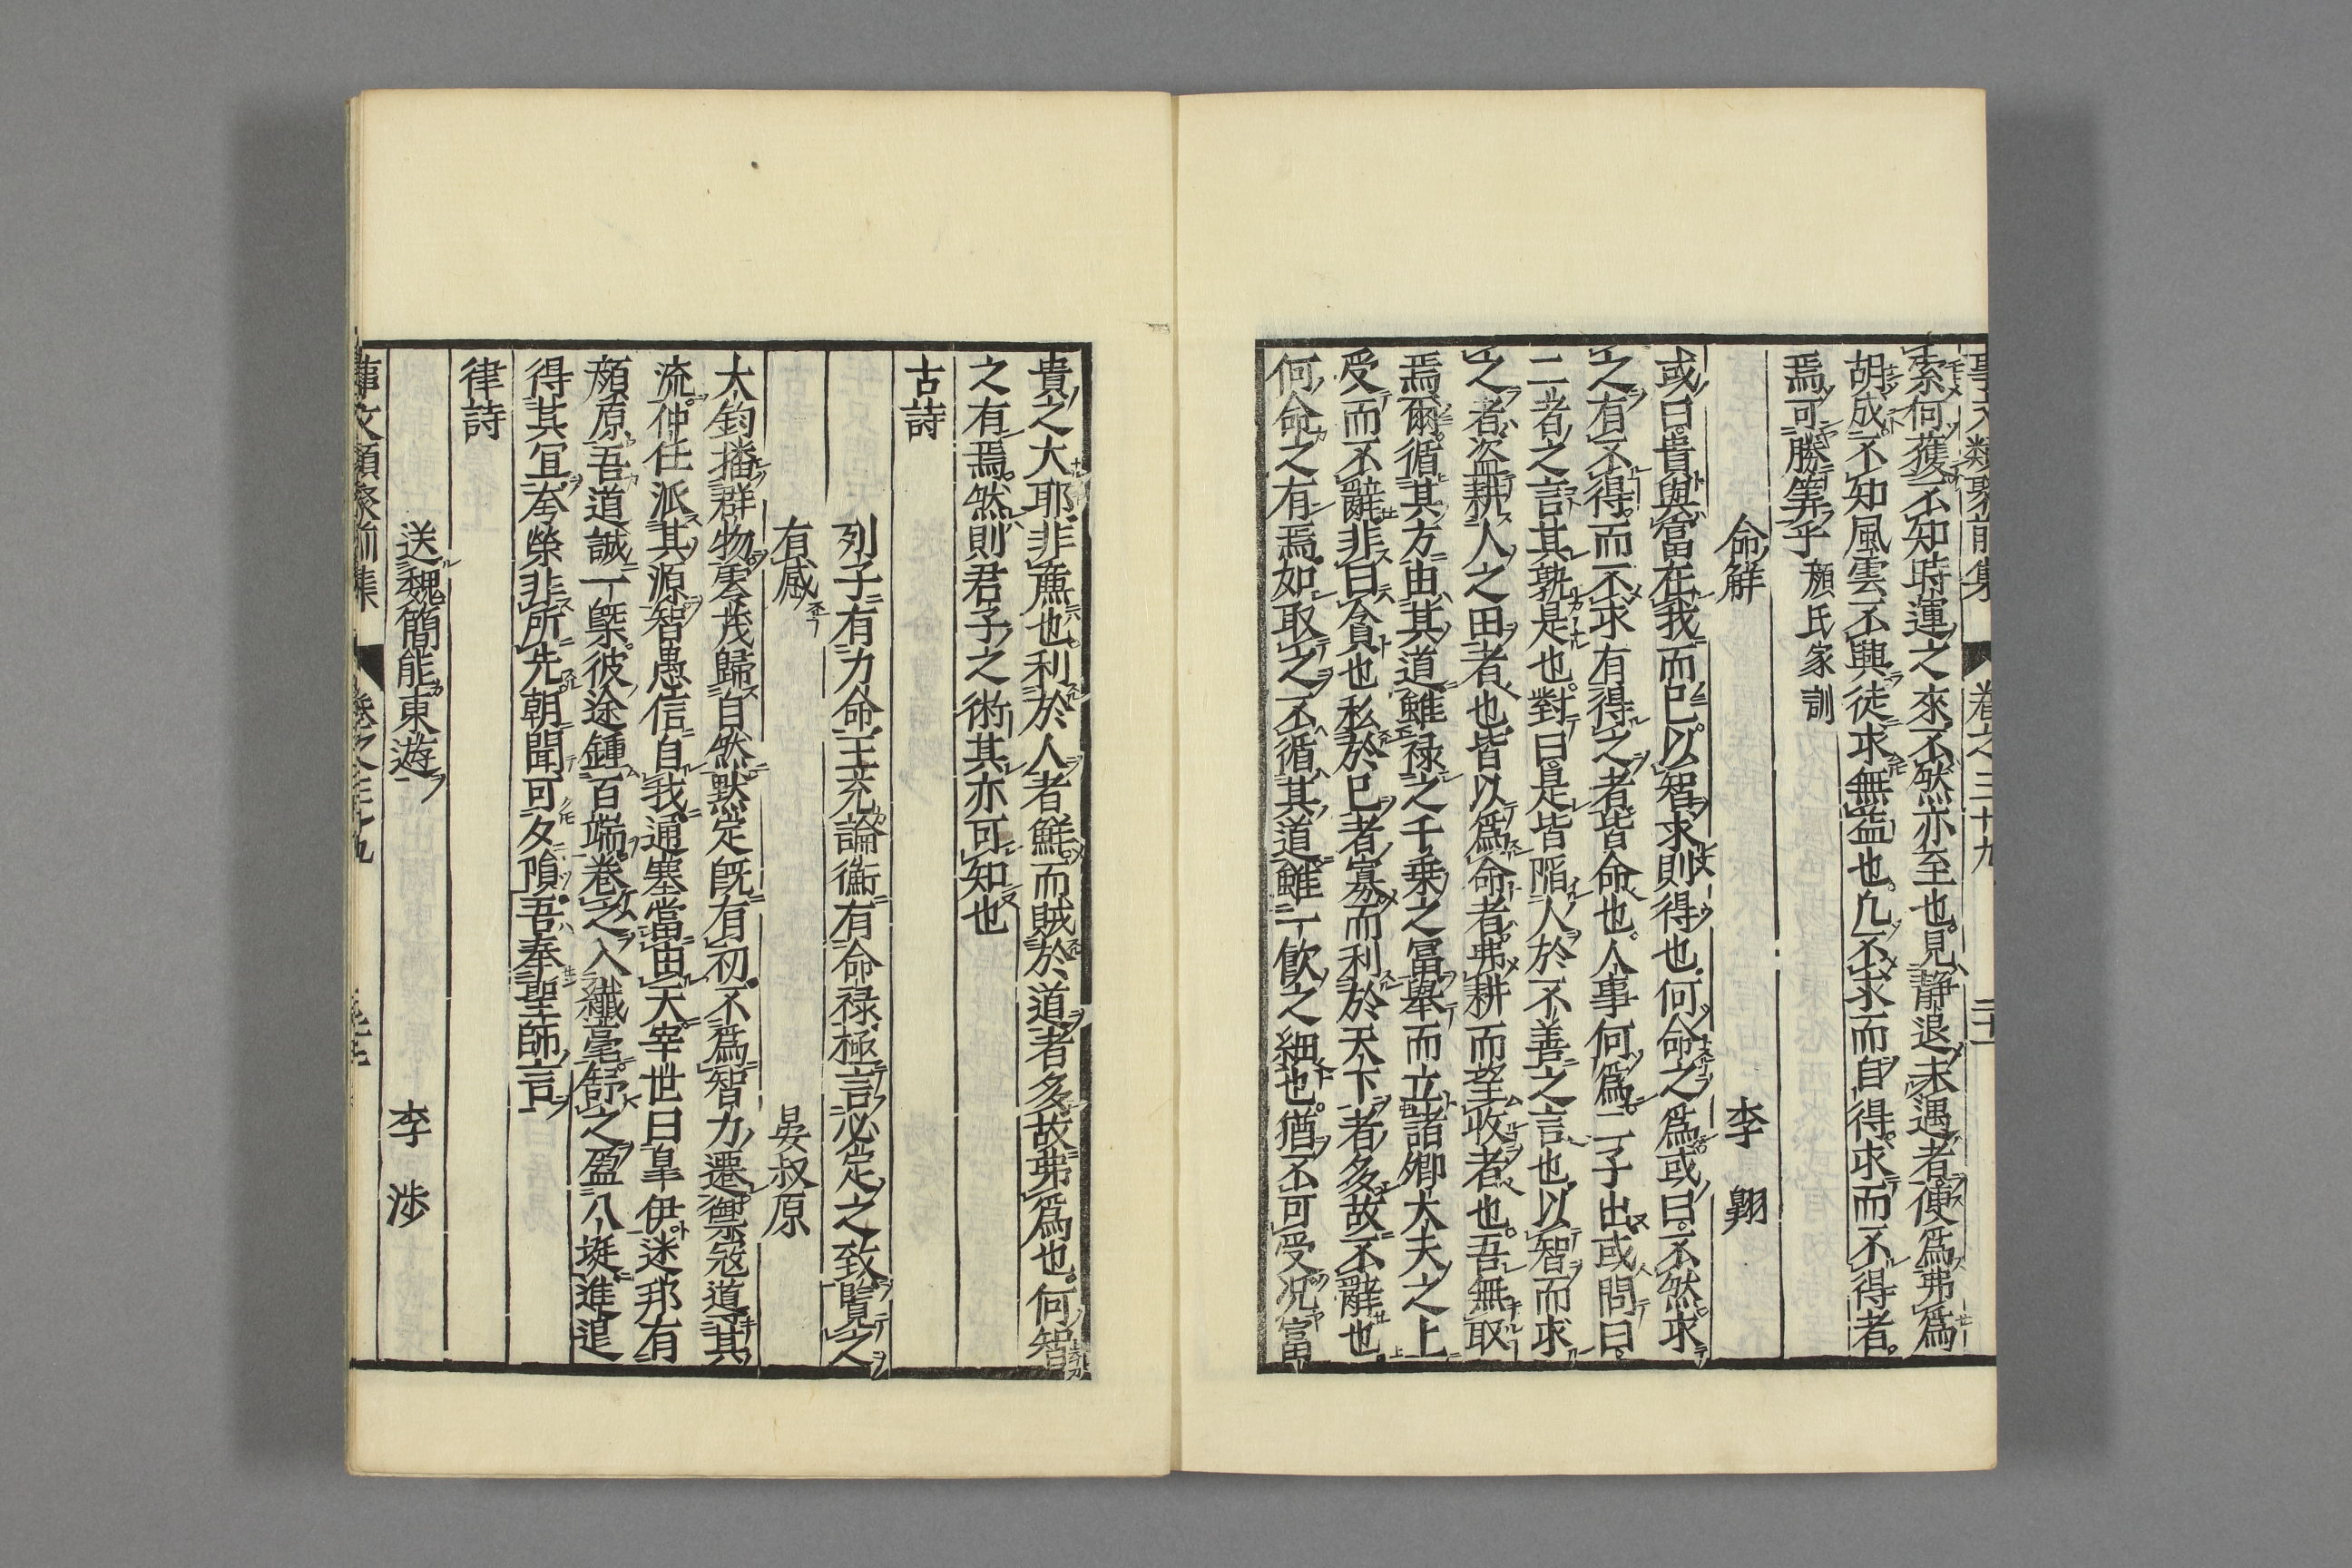 索何獲不知時運之來不然亦至也見静退未遇者便爲弗爲
胡成不知風雲不興徒求無益也凢不求而自得求而不得者
焉可勝筭乎 顔氏家訓
命解 李翺
或曰貴與富在我而已以智求則得也何命之爲或曰不然求
之有不得而不求有得之者皆命也人事何爲二子出或問曰
二者之言其孰是也對曰是皆陷人於不善之言也以智而求
之者盗耕人之田者也皆以爲命者弗耕而望收者也吾無取
焉爾循其方由其道雖禄之千乗之冨舉而立諸卿大夫之上
受而不辭非曰貪也私於已者寡而利於天下者多故不辭也
何命之有焉如取之不循其道雖一飲之細也猶不可受况富
貴之大耶非廉也利於人者鮮而賊於道者多故弗爲也何智
之有焉然則君子之術其亦可知也
古詩
列子有力命王充論衡有命禄極言必定之致覧之
有感 晏叔原
大鈞播群物零茂歸自然黙定既有初不爲智力遷禦冦導其
流仲任派其源智愚信自我通塞當由天宰世曰臯伊迷邦有
顔原吾道誠一槩彼途鍾百端卷之入纎毫舒之盈八埏進退
得其宜夸榮非所先朝聞可夕隕吾奉聖師言
律詩
送魏簡能東遊 李渉